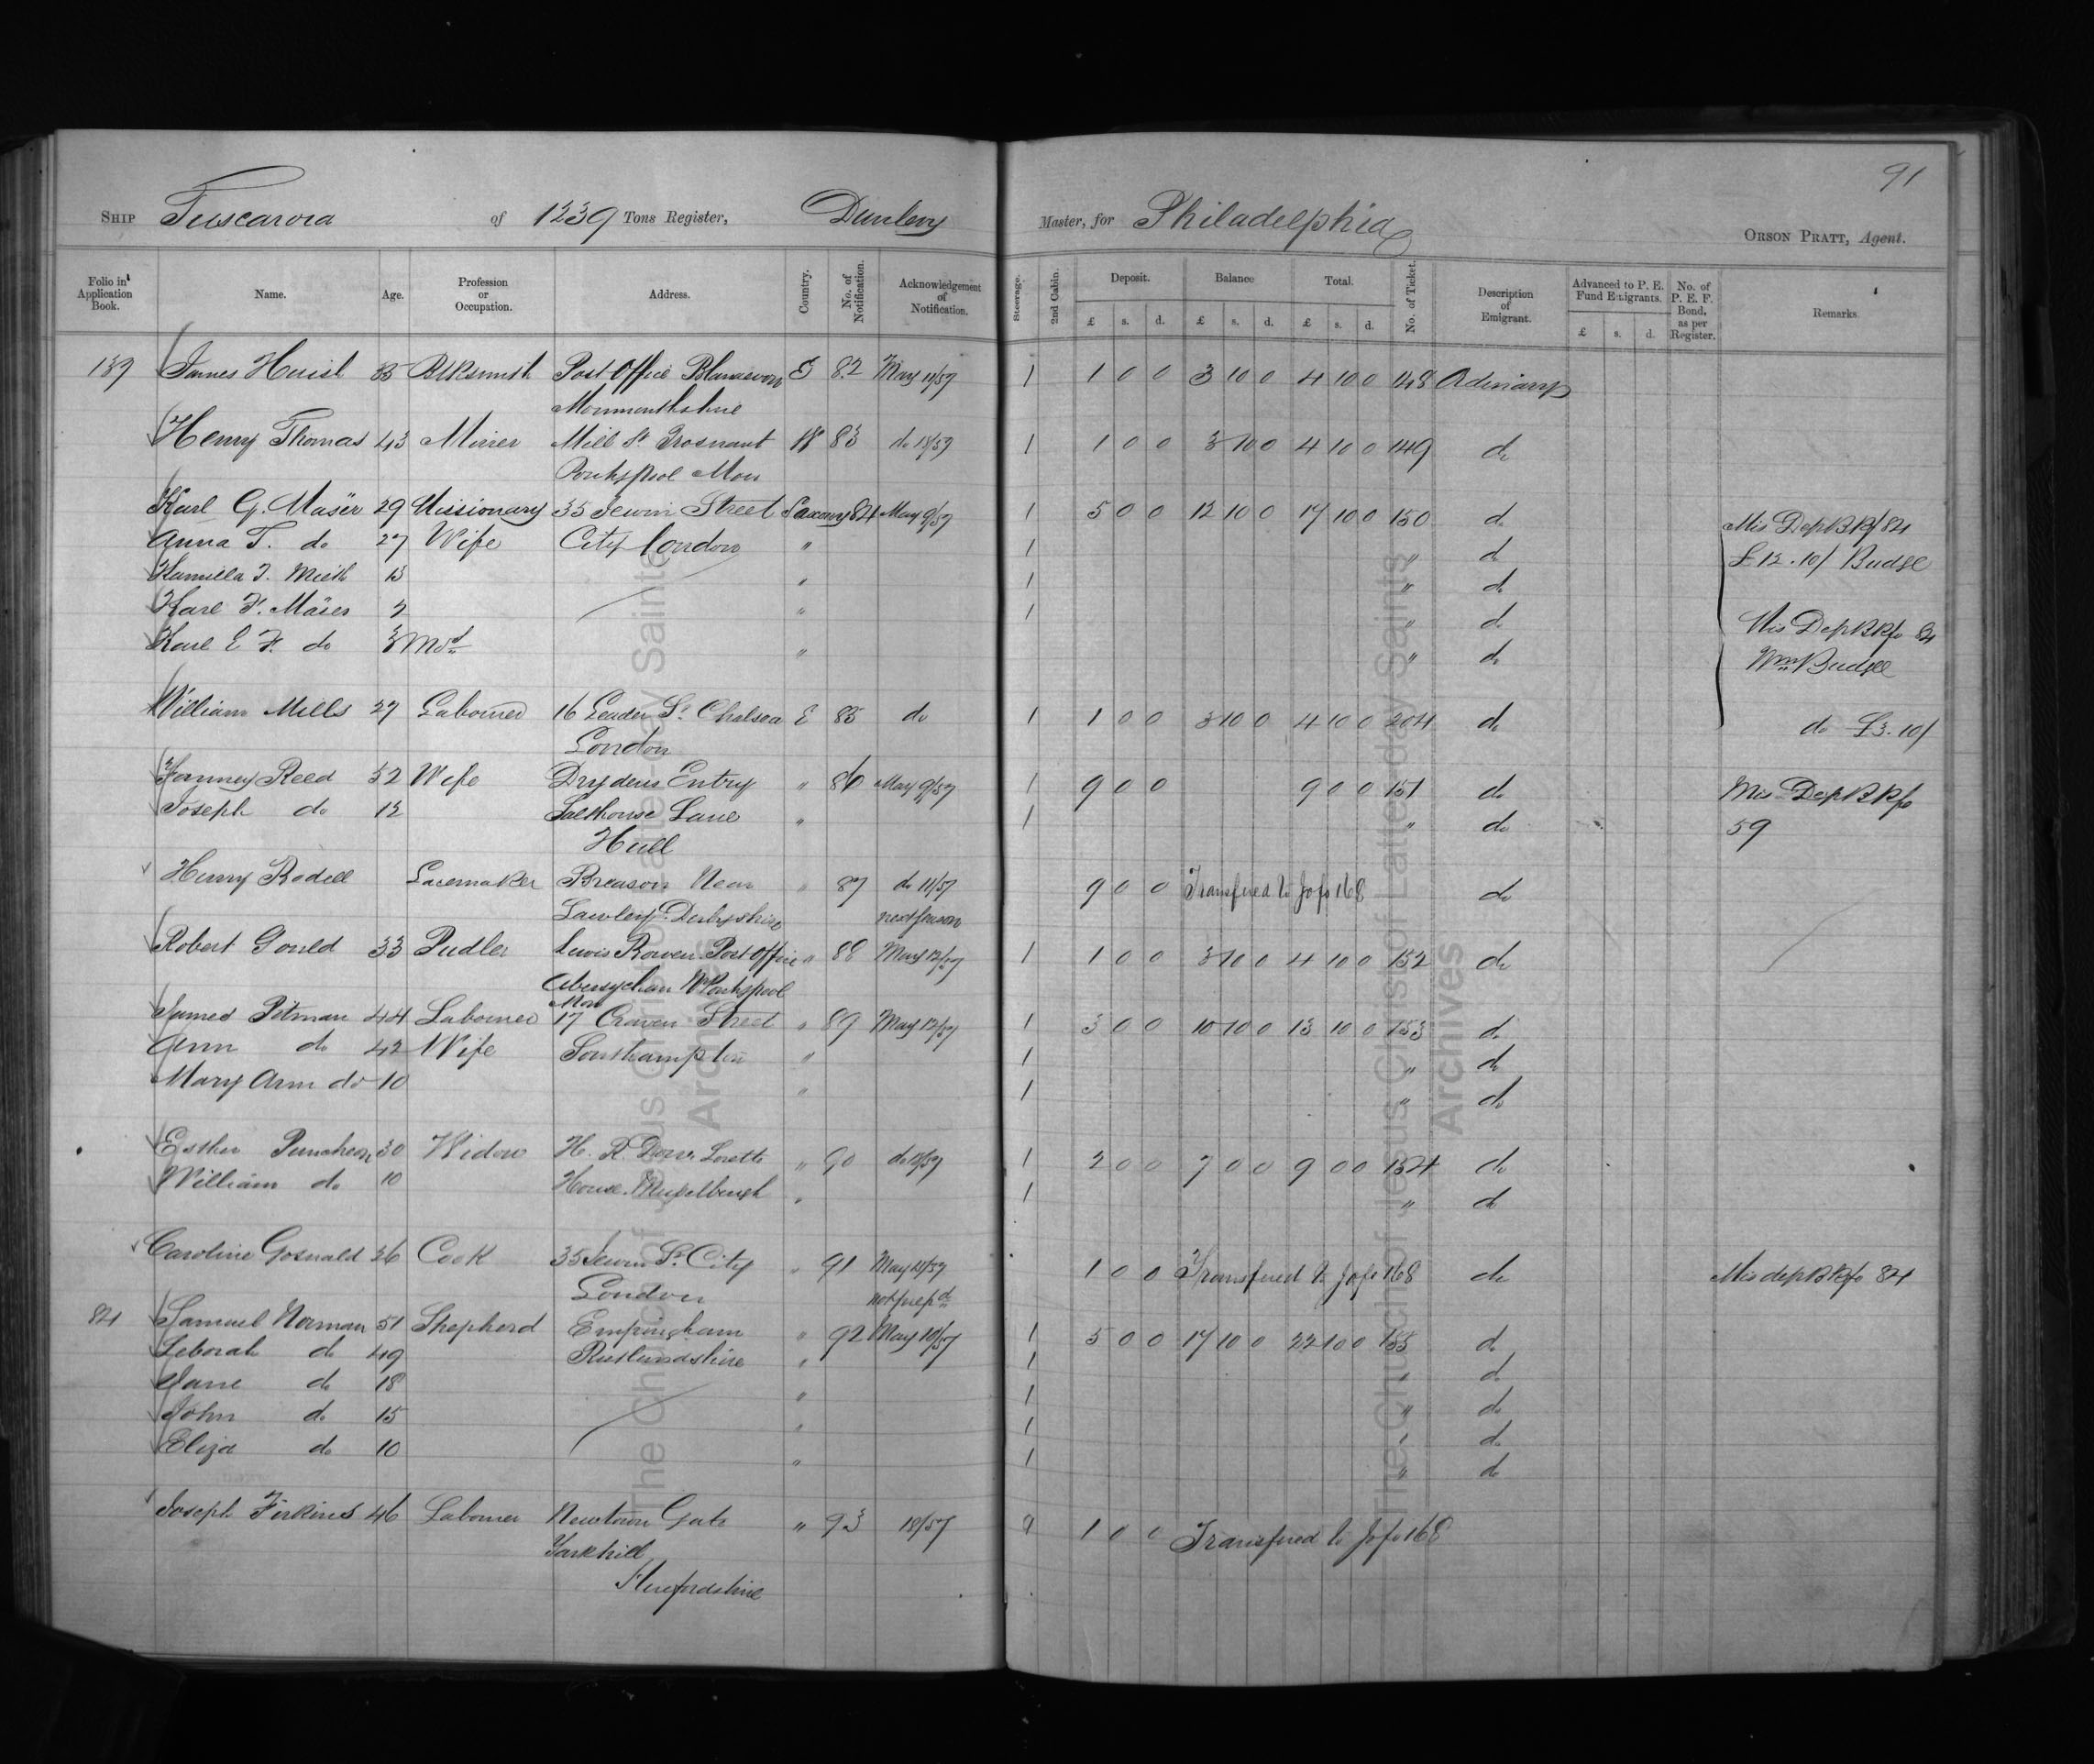 91
SHIP Tuscarora of 1239 Tons Register, Dunlevy Master, for Philadelphia
ORSON PRATT, Agent.
Folio in Application Book. Name. Age. Profession or Occupation. Address. Country. No. of Notification. Acknowledgement of Notification. Steerage. 2nd Cabin. Deposit. Balance Total. No. of Ticket. Description of Emigrant. Advanced to P. E. Fund Emigrants. No. of P. E. F. Bond, as per Register. Remarks.
£ s. d. £ s. d. £ s. d. £ s. d.
139 James Huish Blksmith Post Office Blanaevon E 82 May 11/57 1 1 0 0 3 10 0 4 10 0 148 Ordinary
Monmouthshire
Henry Thomas 43 Miner Mill St W 83 do 18/57 1 1 0 0 3 10 0 4 10 0 149 do
Pontypool Mon
Karl G. Mäser 29 Missionary 35 Jewin Street Saxony 84 May 9/57 1 5 0 0 12 10 0 17 10 0 150 do Mis Dep B Kfo 84
Anna T. do 27 Wife City London " 1 " do £12.10/ Budge
Kamilla T. 13 " 1 " do
Karl F. Mäser 2 " 1 " do Mis Dep B Kfo 84
Karl E F. do 3 Mos " " do Wm Budge
William Mills 27 Labourer 16 Leader St. Chelsea E 85 do 1 1 0 0 3 10 0 4 10 0 204 do do £3.10/
London
Fanney Reed 52 Wife Drydens Entry " 86 May 9/57 1 9 0 0 9 0 0 151 do Mis Dep B Kfo
Joseph do 12 Salthouse Lane " 1 " do 59
Hull
Henry Rodell Lacemaker Breason Near " 87 do 11/57 9 0 0 Transfered to fo 168 do
Sawley Derbyshire next season
Robert Gould 33 Pudler Lewis Bowen Post Office " 88 May 12/57 1 1 0 0 3 10 0 4 10 0 152 do
Abersychan Nr Pontypool
Mon
James Pitman 44 Labourer 17 Craven Street " 89 May 12/57 1 3 0 0 10 10 0 13 10 0 153 do
Ann do 42 Wife Southampton " 1 " do
Mary Ann do 10 " 1 " do
Esther Puncheon 30 Widow H. R. Loretto " 90 do 1 2 0 0 7 0 0 9 0 0 154 do
William do 10 House Muselburgh " 1 " do
Caroline Gosnald 26 Cook 35 Jewin St. City " 91 May 11/57 1 0 0 Transfered to fo 168 do Mis dep B Kfo 84
London not prepd
84 Samuel Norman 51 Shepherd Empingham " 92 May 10/57 1 5 0 0 17 10 0 22 10 0 155 do
Deborah do 49 Rutlandshire " 1 " do
Jane do 18 " 1 " do
John do 15 " 1 " do
Eliza do 10 " 1 " do
Joseph Firkins 46 Labourer Newtown Gate " 93 18/57 1 0 0 Transfered to fo 168
Yarkhill
Herefordshire
The Church of Jesus Christ of Latter-day Saints Archives
The Church of Jesus Christ of Latter-day Saints Archives